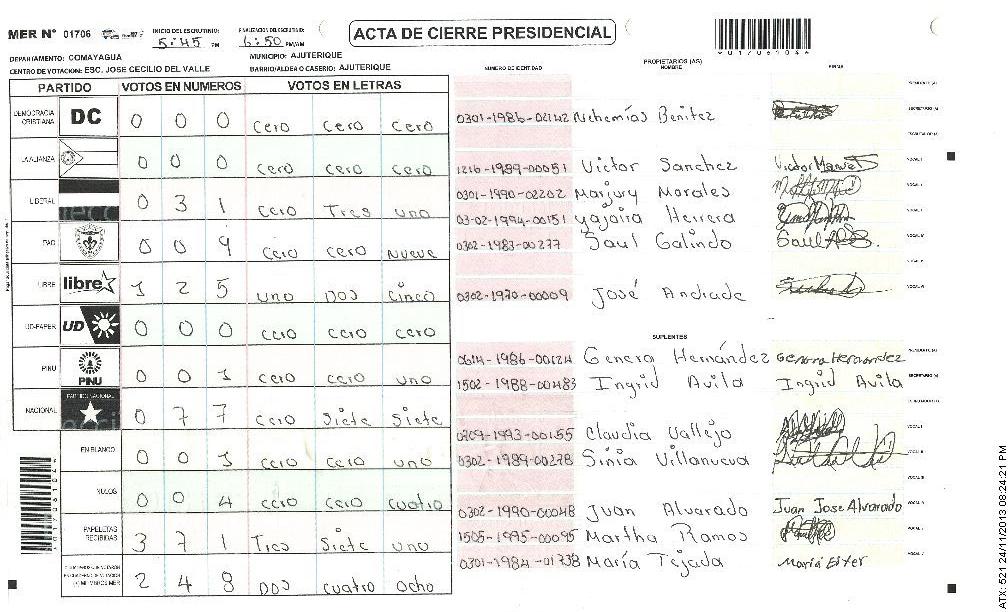 MER N° 01706
INICIO DEL ESCRUTINIO: 5:45 PM
FINALIZACION DEL ESCRUTINIO: 6:50 PM/AM
ACTA DE CIERRE PRESIDENCIAL
DEPARTAMENTO: COMAYAGUA
MUNICIPIO: AJUTERIQUE
CENTRO DE VOTACION: ESC. JOSE CECILIO DEL VALLE
BARRIO/ALDEA O CASERIO: AJUTERIQUE
PARTIDO VOTOS EN NUMEROS VOTOS EN LETRAS
DEMOCRACIA CRISTIANA DC 0 0 0 cero cero cero
LA ALIANZA 0 0 0 cero cero cero
LIBERAL 0 3 1 cero Tres uno
PAC 0 0 9 cero cero nueve
LIBRE libre 1 2 5 uno Dos cinco
UD-FAPER UD 0 0 0 cero cero cero
PINU PINU 0 0 1 cero cero uno
NACIONAL PARTIDO NACIONAL 0 7 7 cero Siete Siete
EN BLANCO 0 0 1 cero cero uno
NULOS 0 0 4 cero cero cuatro
PAPELETAS RECIBIDAS 3 7 1 Tres Siete uno
2 4 8 Dos cuatro ocho
NUMERO DE IDENTIDAD
PROPIETARIOS (AS)
NOMBRE
FIRMA
0301-1986-02142 Nehemías Benitez
1216-1989-00051 Victor Sanchez Victor Manuel
0301-1990-02202 Marjury Morales
0302-1994-00151 Yajaira Herrera
0302-1983-00277 Saul Galindo
0302-1970-00009 José Andrade
SUPLENTES
Genera Hernández Genera Hernandez
1502-1988-00483 Ingrid Avila Ingrid Avila
0209-1993-00155 Claudia Vallejo
0302-1989-00278 Sinia Villanueva
0302-1990-00048 Juan Alvarado Juan Jose Alvarado
1505-1995-00095 Martha Ramos
0301-1984-01338 María Tejada María Ester
ATX: 521 24/11/2013 08:24:21 PM